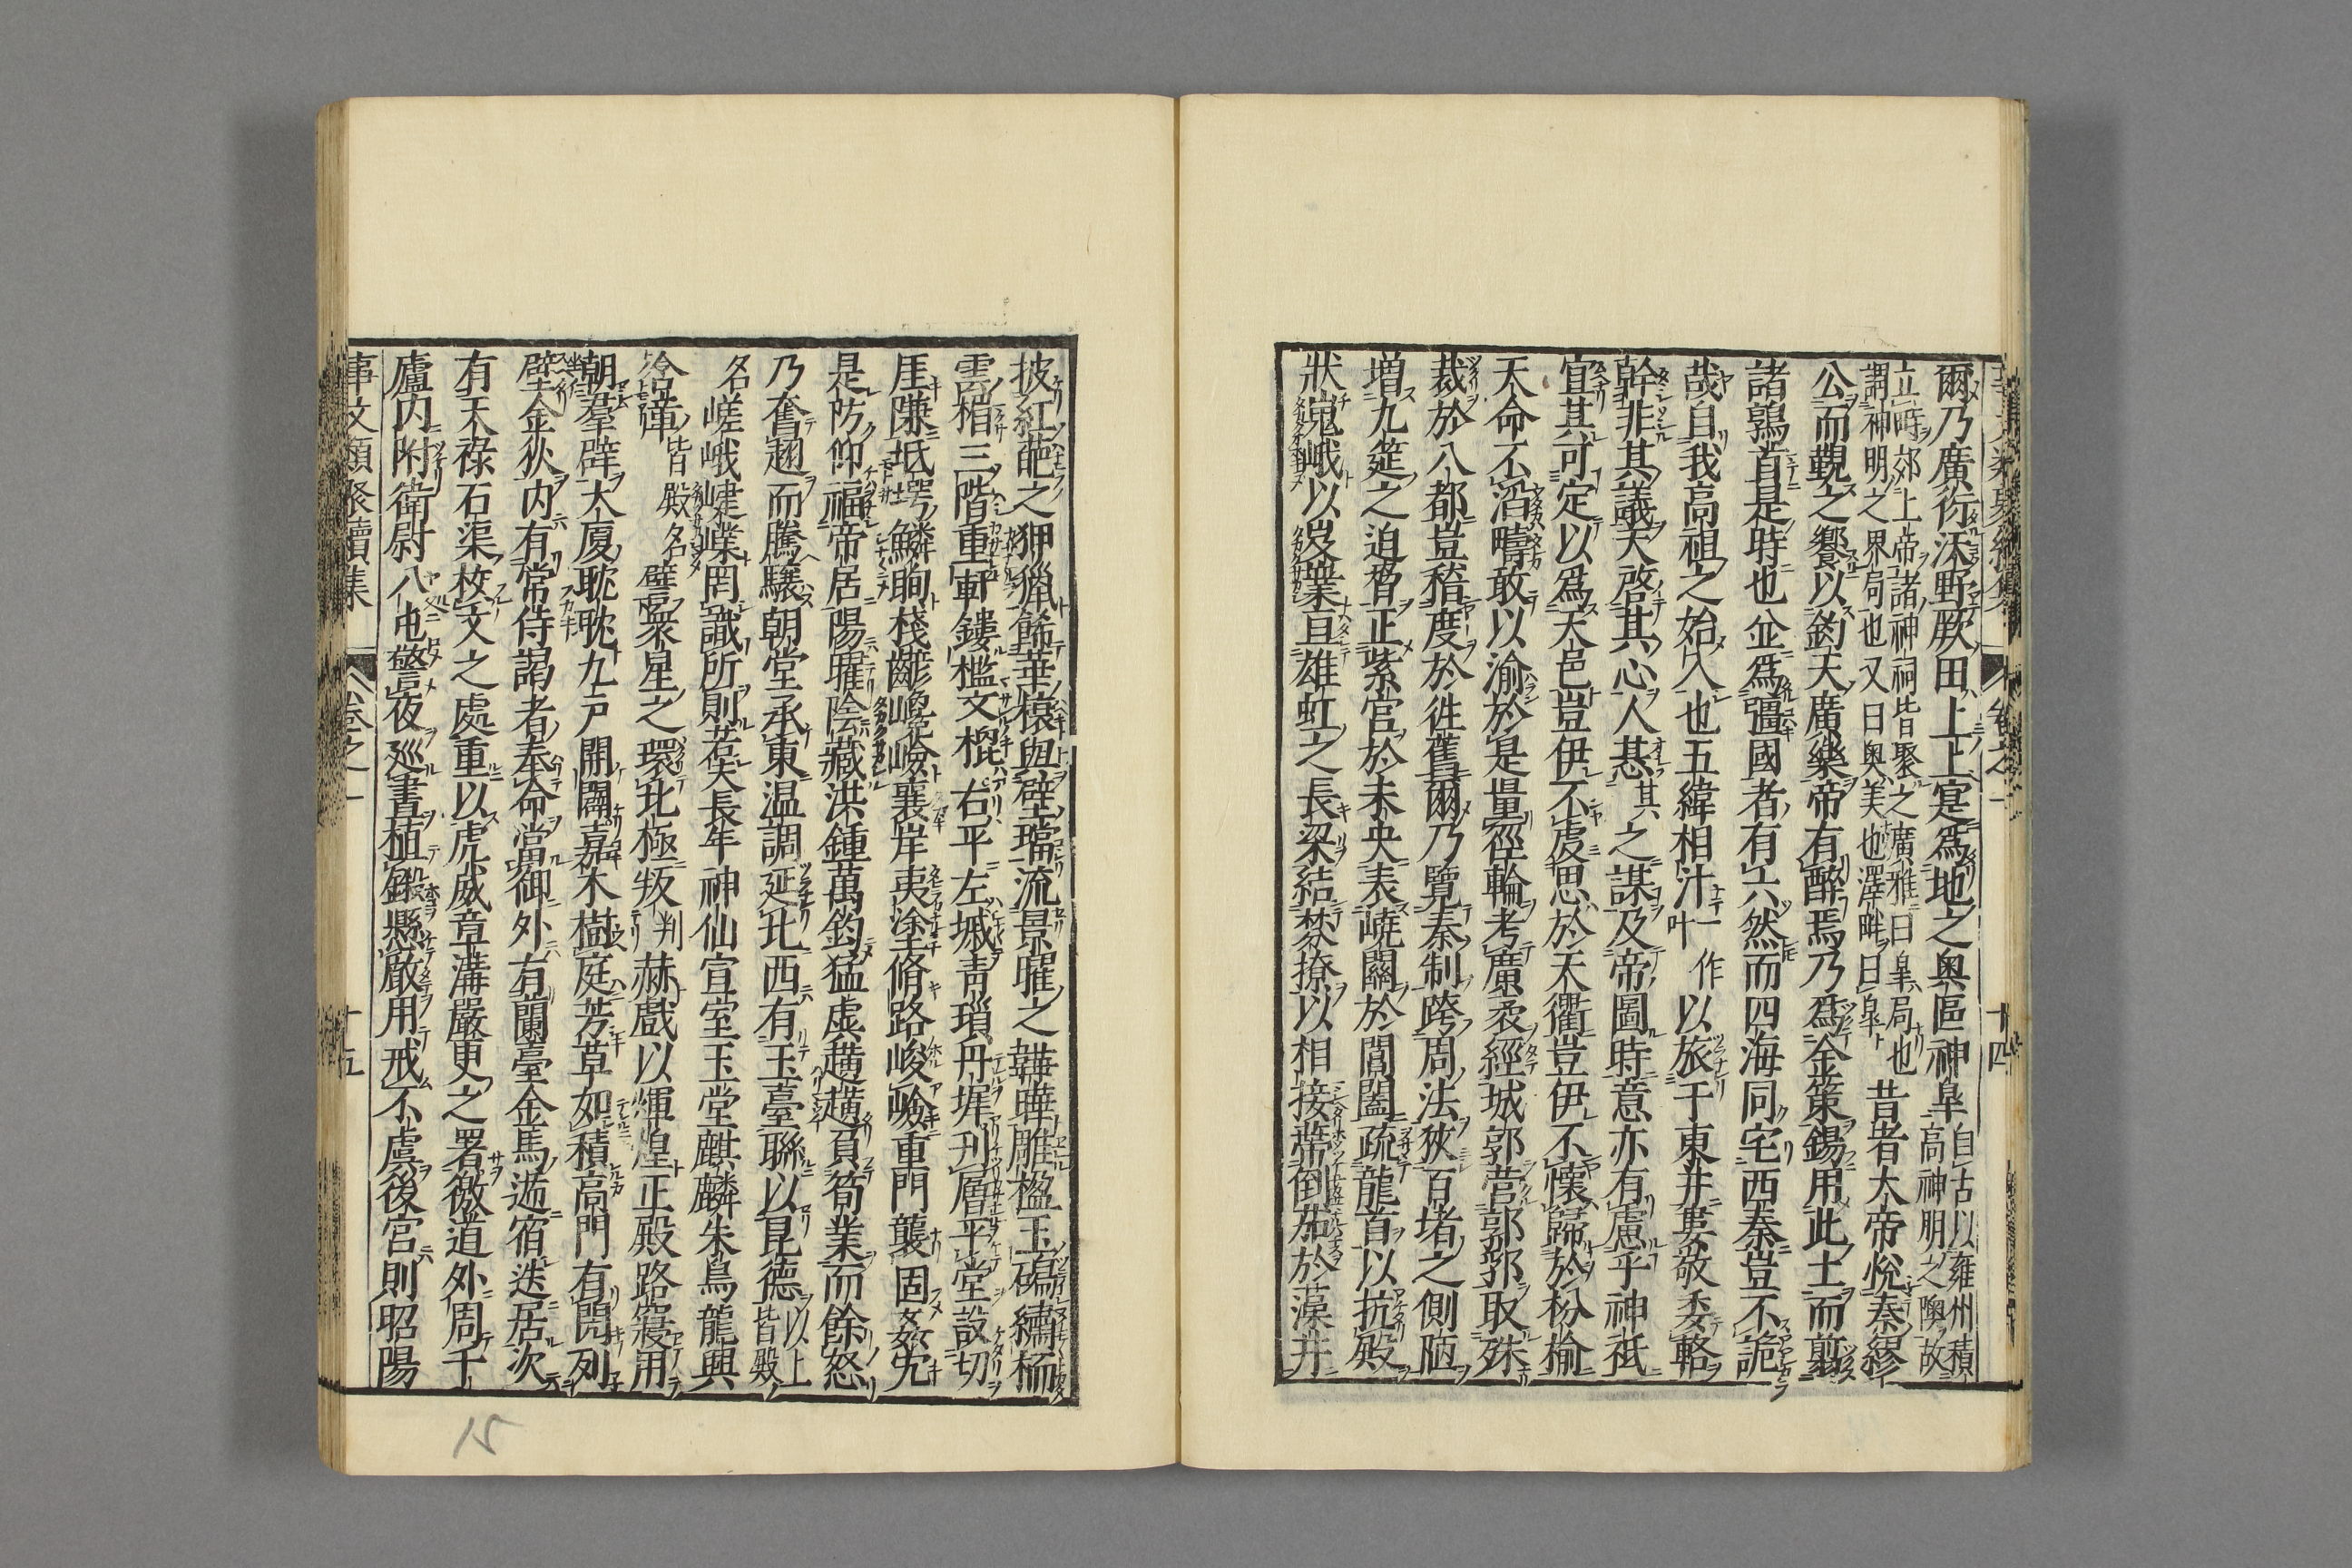 爾乃廣衍沃野厥田上上寔爲地之奧區神皐自古以雍州積
高神明之隩故
立畤郊上帝諸神祠皆聚之廣雅曰皐局也
謂神明之界局也又曰奧美也澤畔曰皐
昔者大帝悅秦繆
公而覲之饗以鈞天廣樂帝有醉焉乃爲金策錫用此土而翦
諸鶉首是時也並爲彊國者有六然而四海同宅西秦豈不詭
哉自我高祖之始入也五緯相汁一作叶以旅于東井婁敬委輅
幹非其議天啓其心人惎其之謀及帝圖時意亦有慮乎神祇
宜其可定以爲天邑豈伊不虔思於天衢豈伊不懷歸於枌榆
天命不滔疇敢以渝於是量徑輪考廣袤經城郭营郭郛取殊
裁於八都豈稽度於徃舊爾乃覽秦制跨周法狹百堵之側陋
増九筵之迫脅正紫宫於未央表嶢闕於閶闔疏龍首以抗殿
狀嵬峨以岌嶪亘雄虹之長梁結棼橑以相接蔕倒茄於藻井
披紅葩之狎獵餙華榱與壁璫流景曜之韡曄雕楹玉磶繡栭
雲楣三階重軒鏤檻文㮰右平左墄靑瑣丹墀刋層平堂設切
厓隒坻堮鱗眴棧齴巉嶮襄岸夷塗脩路峻嶮重門襲固姦宄
是防仰福帝居陽曜陰藏洪鍾萬鈞猛虡趪趪負筍業而餘怒
乃奮翅而騰驤朝堂承東温調延北西有玉臺聯以昆德以上皆殿
名嵯峨崨嶪罔識所則若夫長年神仙宣室玉堂麒麟朱鳥龍興
含章皆殿名譬衆星之環北極叛判赫戲以輝煌正殿路寢用
朝羣辟大厦耽耽九戸開闢嘉木樹庭芳草如積高門有閌列
壁金狄内有常侍謁者奉命當御外有蘭臺金馬遞宿迭居次
有天祿石渠校文之處重以虎威章溝嚴更之署徼道外周千
廬内附衛尉八屯警夜廵晝植鎩懸瞂用戒不虞後宮則昭陽
事文類聚續集
卷之一
十五